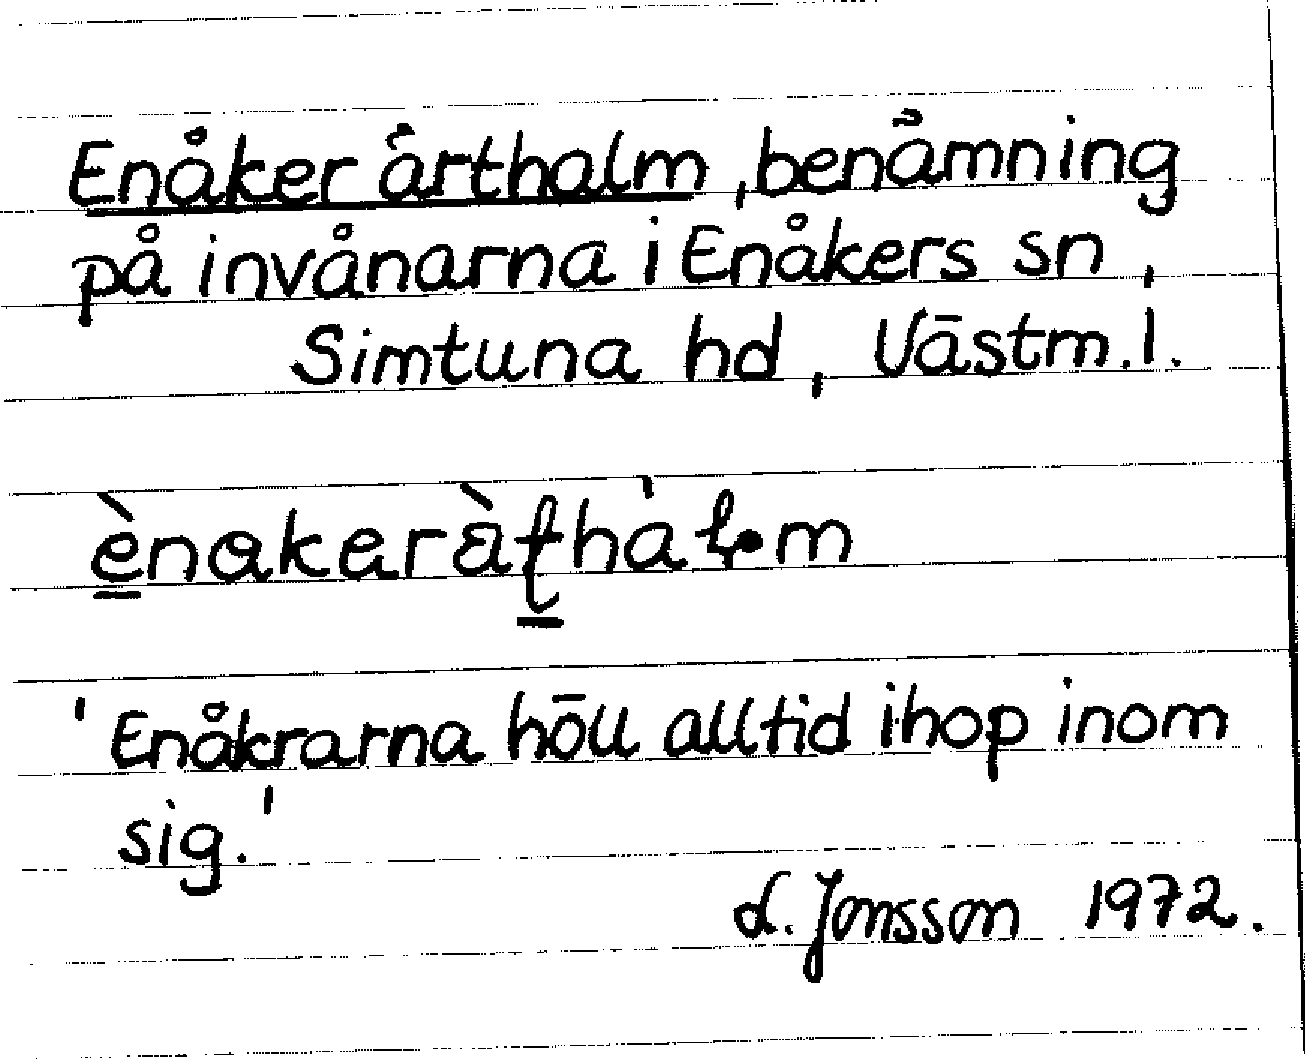 Enåker ärthalm, benämning
på invånarna i Enåkers sn,
Simtuna hd, Västm.l.
'Enåkrarna höll alltid ihop inom
sig.'
L. Jonsson 1972.